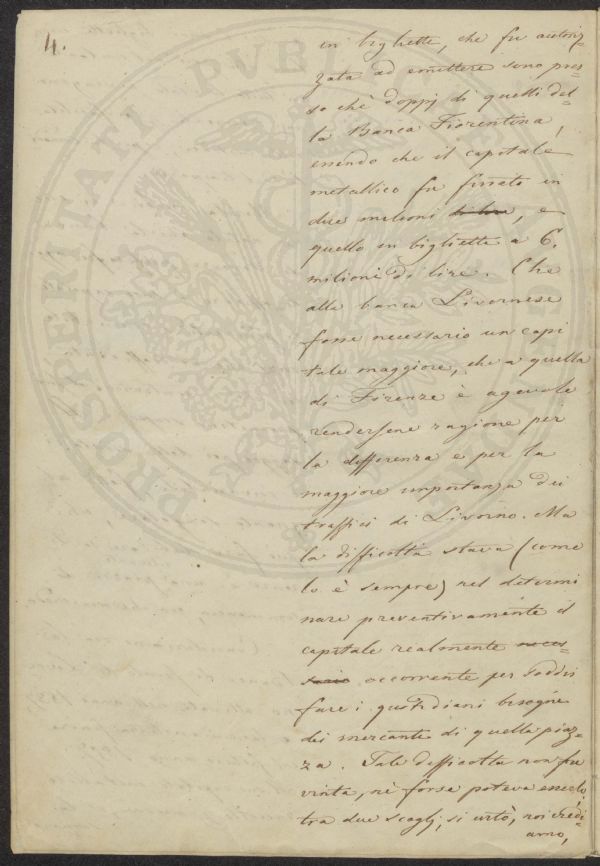 4.
in biglietti, che fu autoriz=
zata ad emettere sono pres=
so chè doppj di quelli del=
la Banca Fiorentina,
essendo che il capitale
metallico fu fissato in
due milioni di lire, e
quello in biglietti a 6.
milioni di lire. Che
alla banca Livornese
fosse necessario un capi
tale maggiore, che a quella
di Firenze è agevole
rendersene ragione per
la differenza e per la
maggiore importanza dei
traffici di Livorno. Ma
la difficoltà stava (come
lo è sempre) nel determi
nare preventivamente il
capitale realmente neces=
sario occorrente per soddis
fare i quotidiani bisogni
dei mercanti di quella piaz=
za. Tale difficoltà non fu
vinta, nè forse poteva esserlo;
tra due scogli, si urtò, noi credi=
amo,
PROSPERITATI PVBLICAE